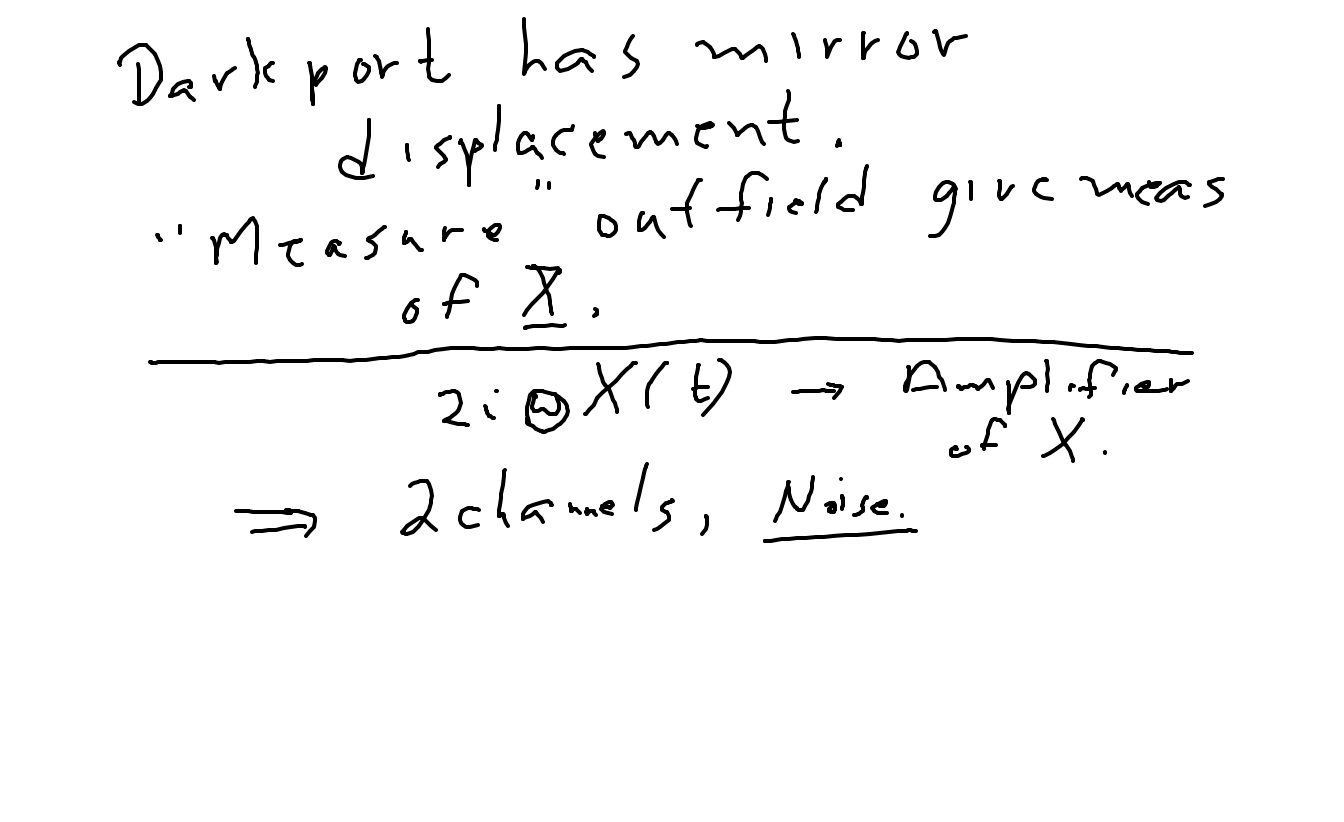 Dark port has mirror
displacement.
"Measure" outfield give meas
of X.
2i ω X(t) → Amplifier
of X.
⇒ 2 channels, Noise.